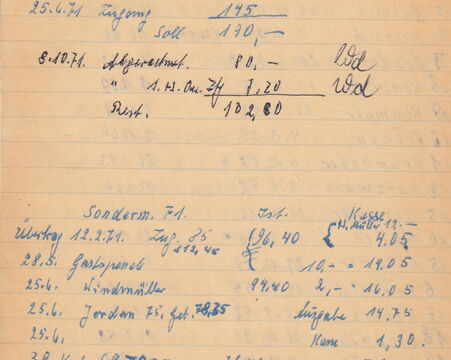 25.6.71 Zugang 145
Soll 190,—
8.10.71. Abgerechnet. 80,— Wd
" 1.+2. 7,20 Wd
Rest. 102,80
Sonderm. F1. Ist. Kasse
H. Müller 12.—
Übertrag 12.2.71. Zug. 85 = 96,40 4,05
112,45
28.5. Gastspende 10,— = 14,05
25.6. Windmüller 94,40 2,— = 16,05
25.6. Jordan 75, get. 78,35 Ausgabe 14,75
25.6. Kasse 1,30.